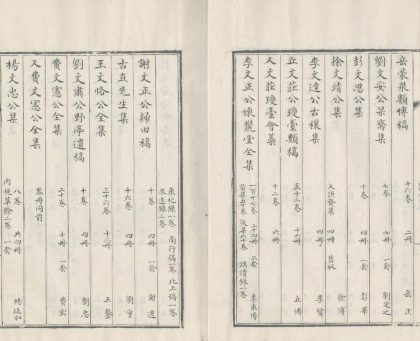 岳蒙泉類博稿 十六卷 二冊 岳正
劉文安公呆齋集 七卷 一冊 劉定之
彭文思公集 十卷 四冊 彭華
徐文靖公集 四冊 徐溥
李文達公古穰集 四冊 李賢
丘文莊公瓊臺類稿 五十二卷
又文莊瓊臺會藁 十二卷 六冊
李文正公懷麓堂全集 二套 李東陽
東祀錄一卷 南行稿一卷 北上稿一卷
謝文正公歸田稿 十卷 四冊 一套 謝遷
古直先生集 十六卷 四冊
王文恪公全集 三十六卷 一套 王鏊
劉文肅公野亭遺稿 十卷 四冊 劉忠
費文憲公全集 二十卷 十冊 一套 費宏
又費文憲公全集 卷冊同前
楊文忠公集 八卷 共四冊 一套 楊廷和